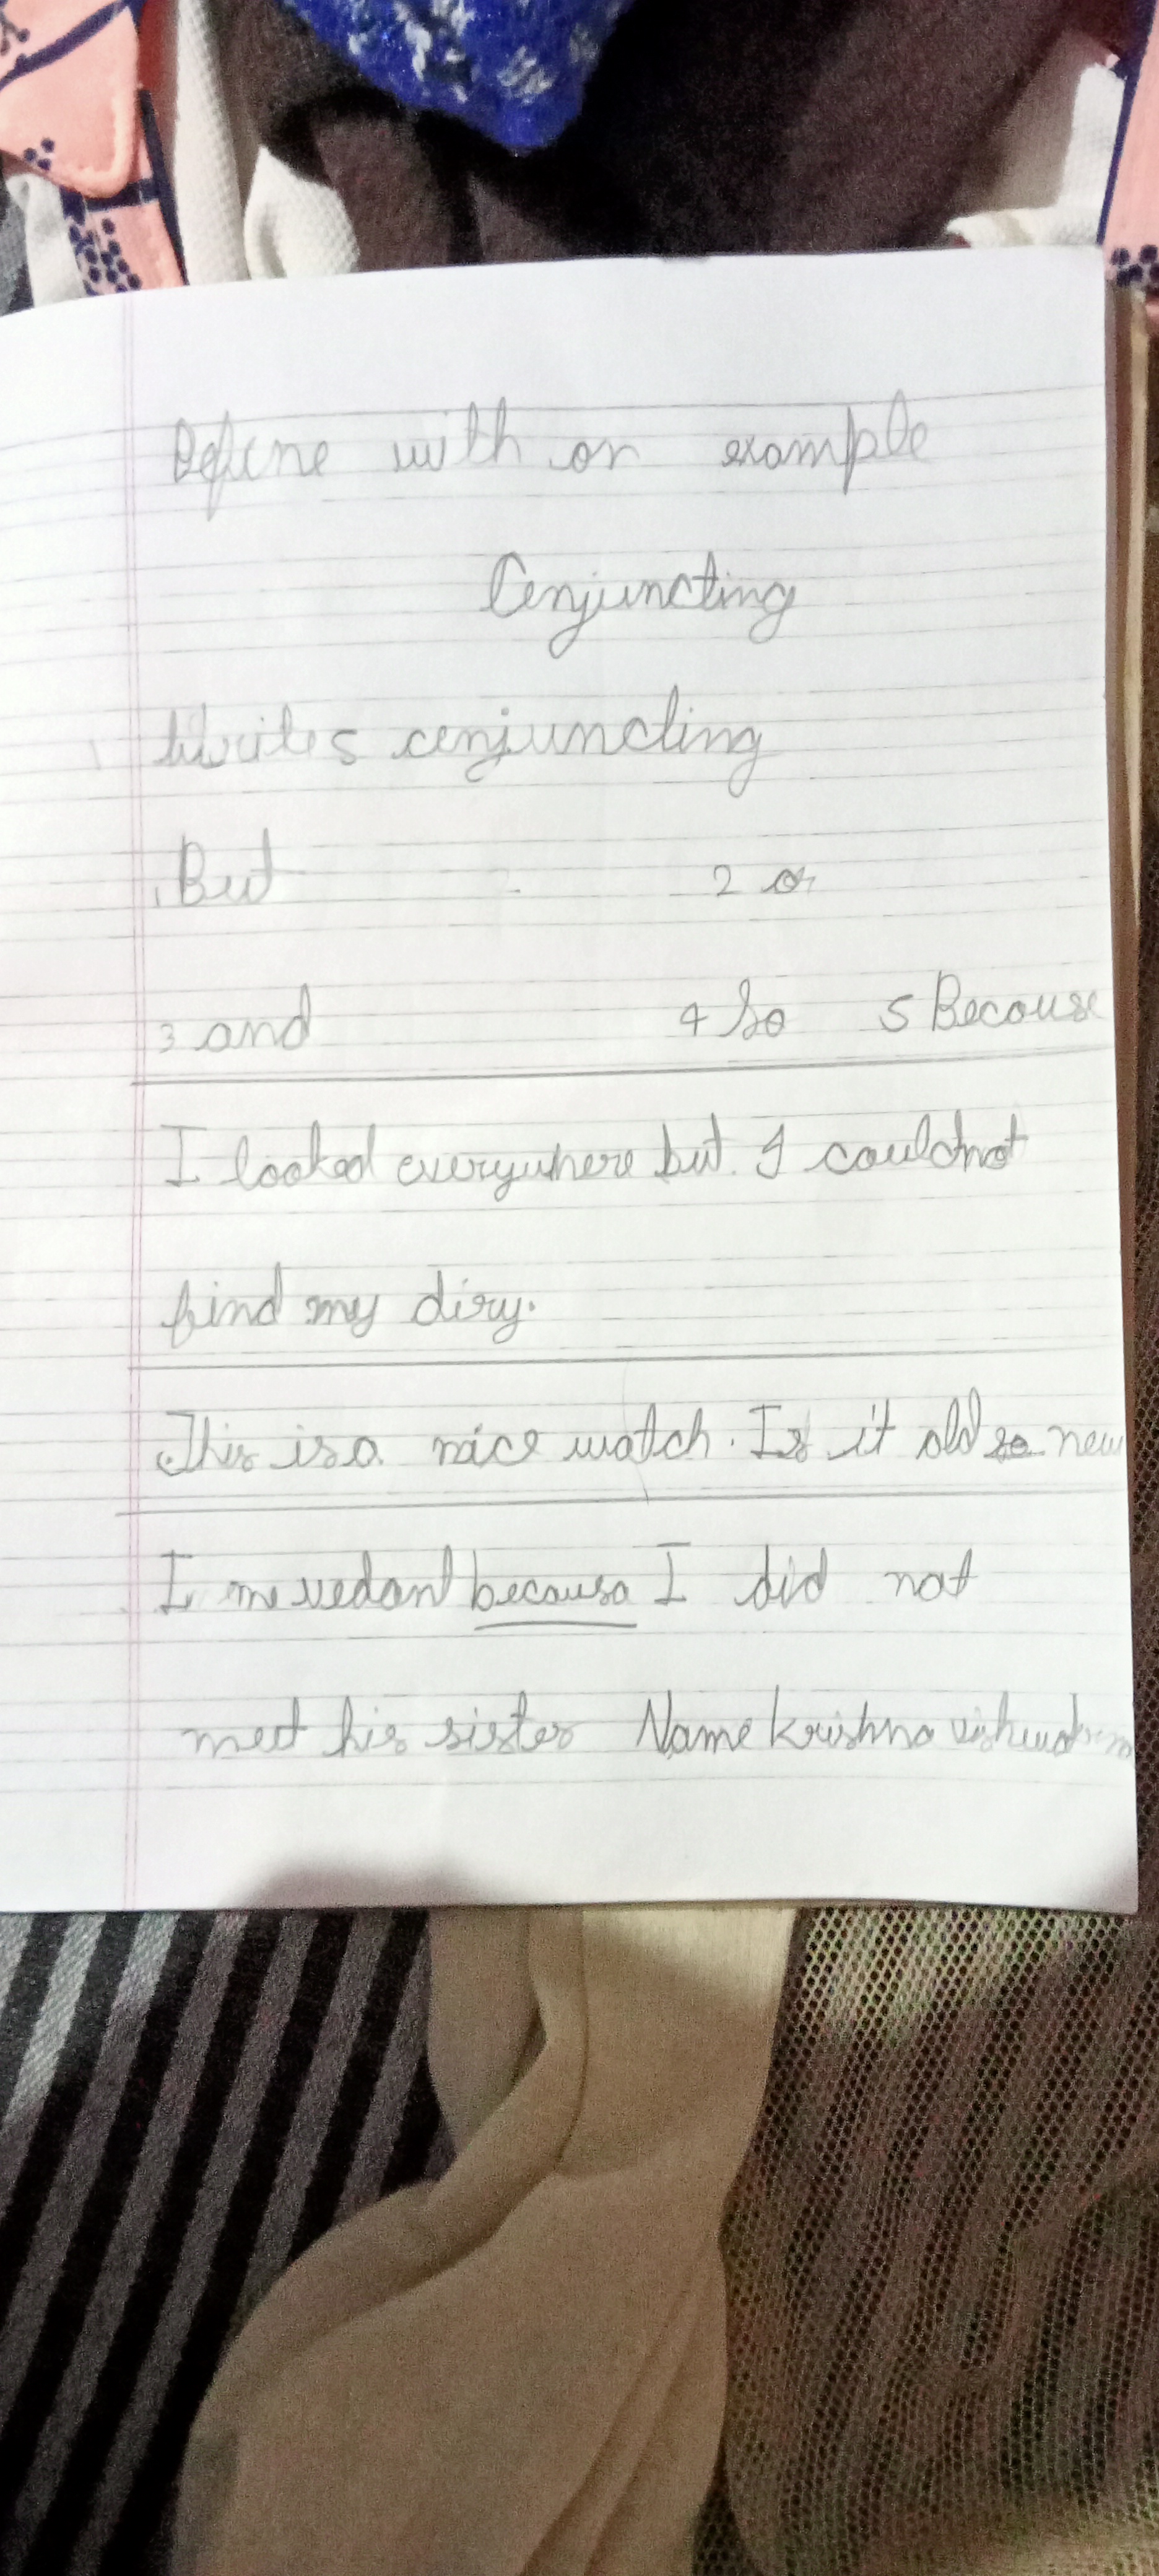 Define with on example
Conjuncting
Writes conjuncting
1 But 2 or
3 and 4 So 5 Becouse
I looked everywhere but I couldnot
find my diry.
This is a nice watch. Is it old so new
I me vedant becausa I did not
meet his sister Name krishna